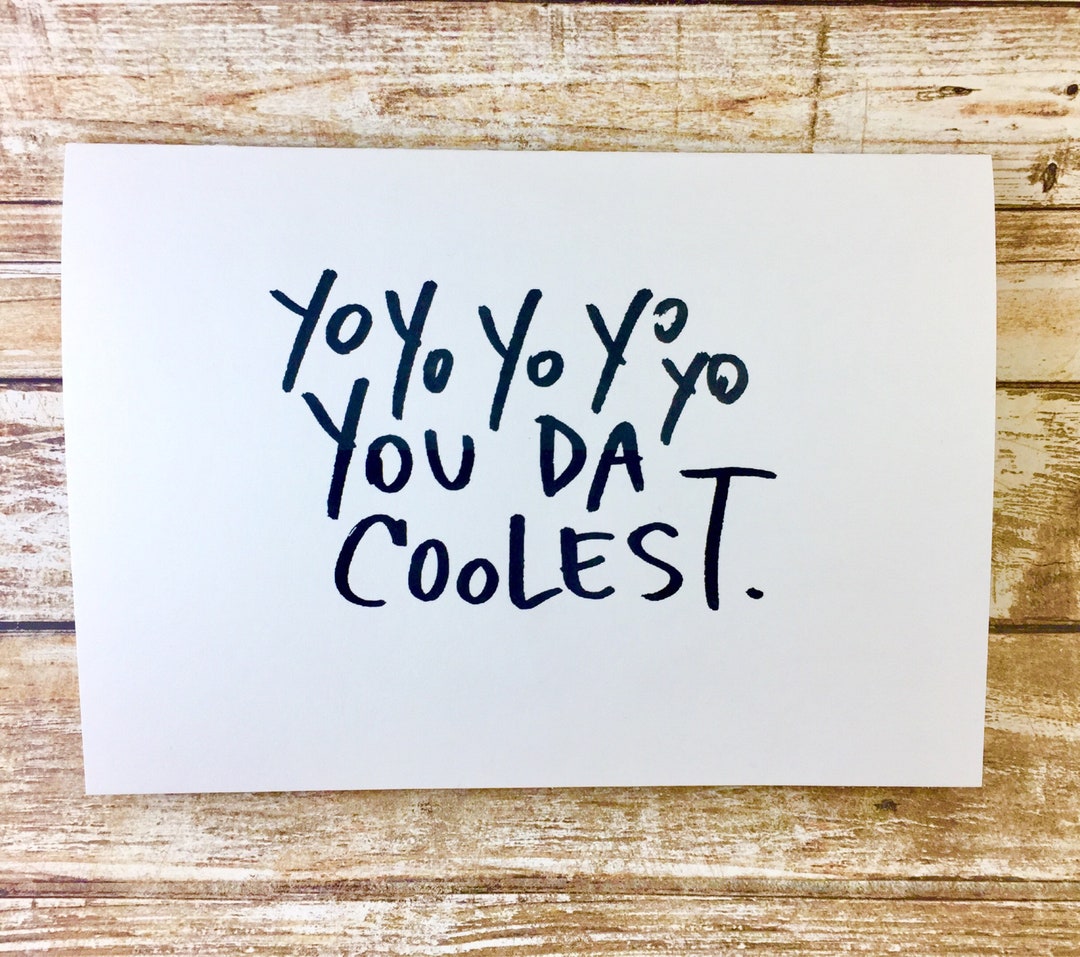 YO YO YO YO YO
YOU DA
COOLEST.